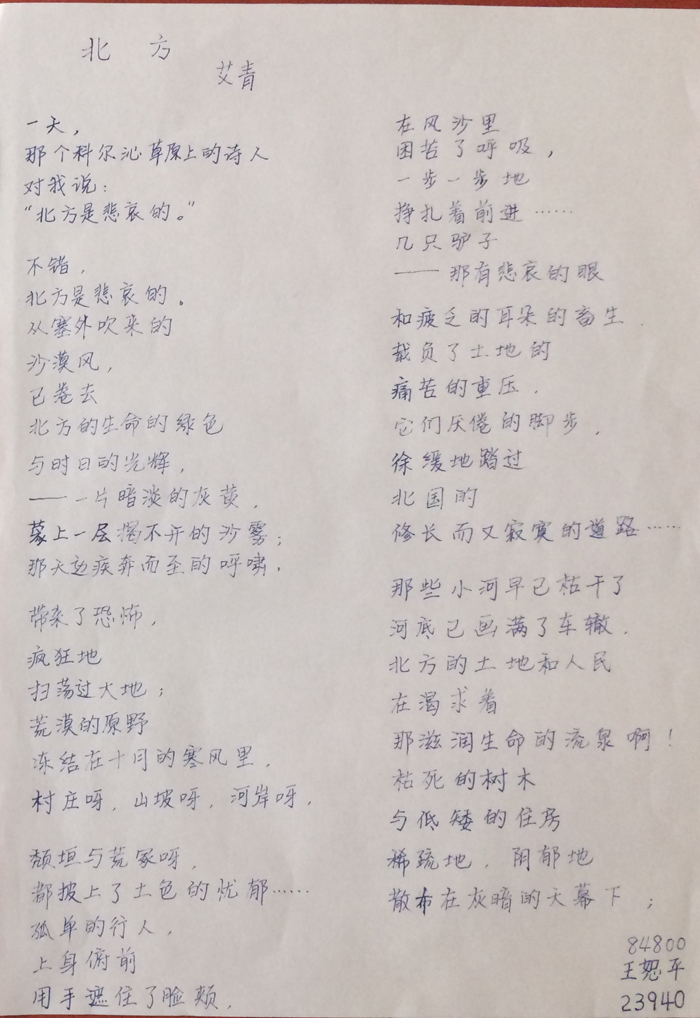 北方
艾青
一天，
那个科尔沁草原上的诗人
对我说：
“北方是悲哀的。”
不错，
北方是悲哀的。
从塞外吹来的
沙漠风，
已卷去
北方的生命的绿色
与时日的光辉，
——一片暗淡的灰黄，
蒙上一层揭不开的沙雾；
那天边疾奔而至的呼啸，
带来了恐怖，
疯狂地
扫荡过大地；
荒漠的原野
冻结在十月的寒风里，
村庄呀，山坡呀，河岸呀，
颓垣与荒冢呀，
都披上了土色的忧郁……
孤单的行人，
上身俯前
用手遮住了脸颊，
在风沙里
困苦了呼吸，
一步一步地
挣扎着前进……
几只驴子
——那有悲哀的眼
和疲乏的耳朵的畜生，
载负了土地的
痛苦的重压，
它们厌倦的脚步，
徐缓地踏过
北国的
修长而又寂寞的道路……
那些小河早已枯干了
河底已画满了车辙，
北方的土地和人民
在渴求着
那滋润生命的流泉啊！
枯死的树木
与低矮的住房
稀疏地，阴郁地
散布在灰暗的天幕下；
84800
王恕平
23940